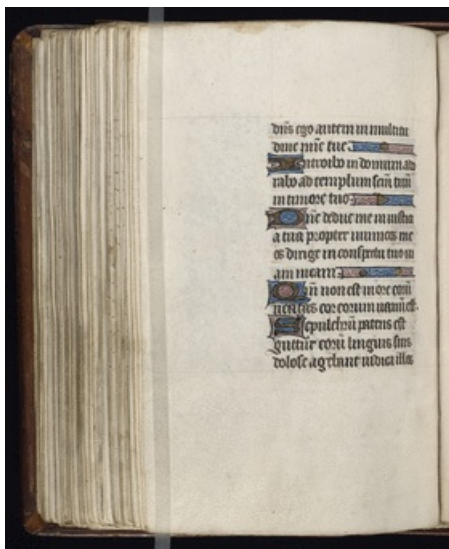 dñs ego autem in multitu
dine mīe tue
Introibo in domum ad
rabo ad templum scm̄ tuū
in timore tuo
Dñe deduc me in iusticia
a tua propter inimicos me
os dirige in conspectu tuo ui
am meam
Qm̄ non est in ore eorū
ueritas cor eorum uanū est.
Sepulchrū patens est
guttur eorū linguis suis
dolose agebant iudica illos